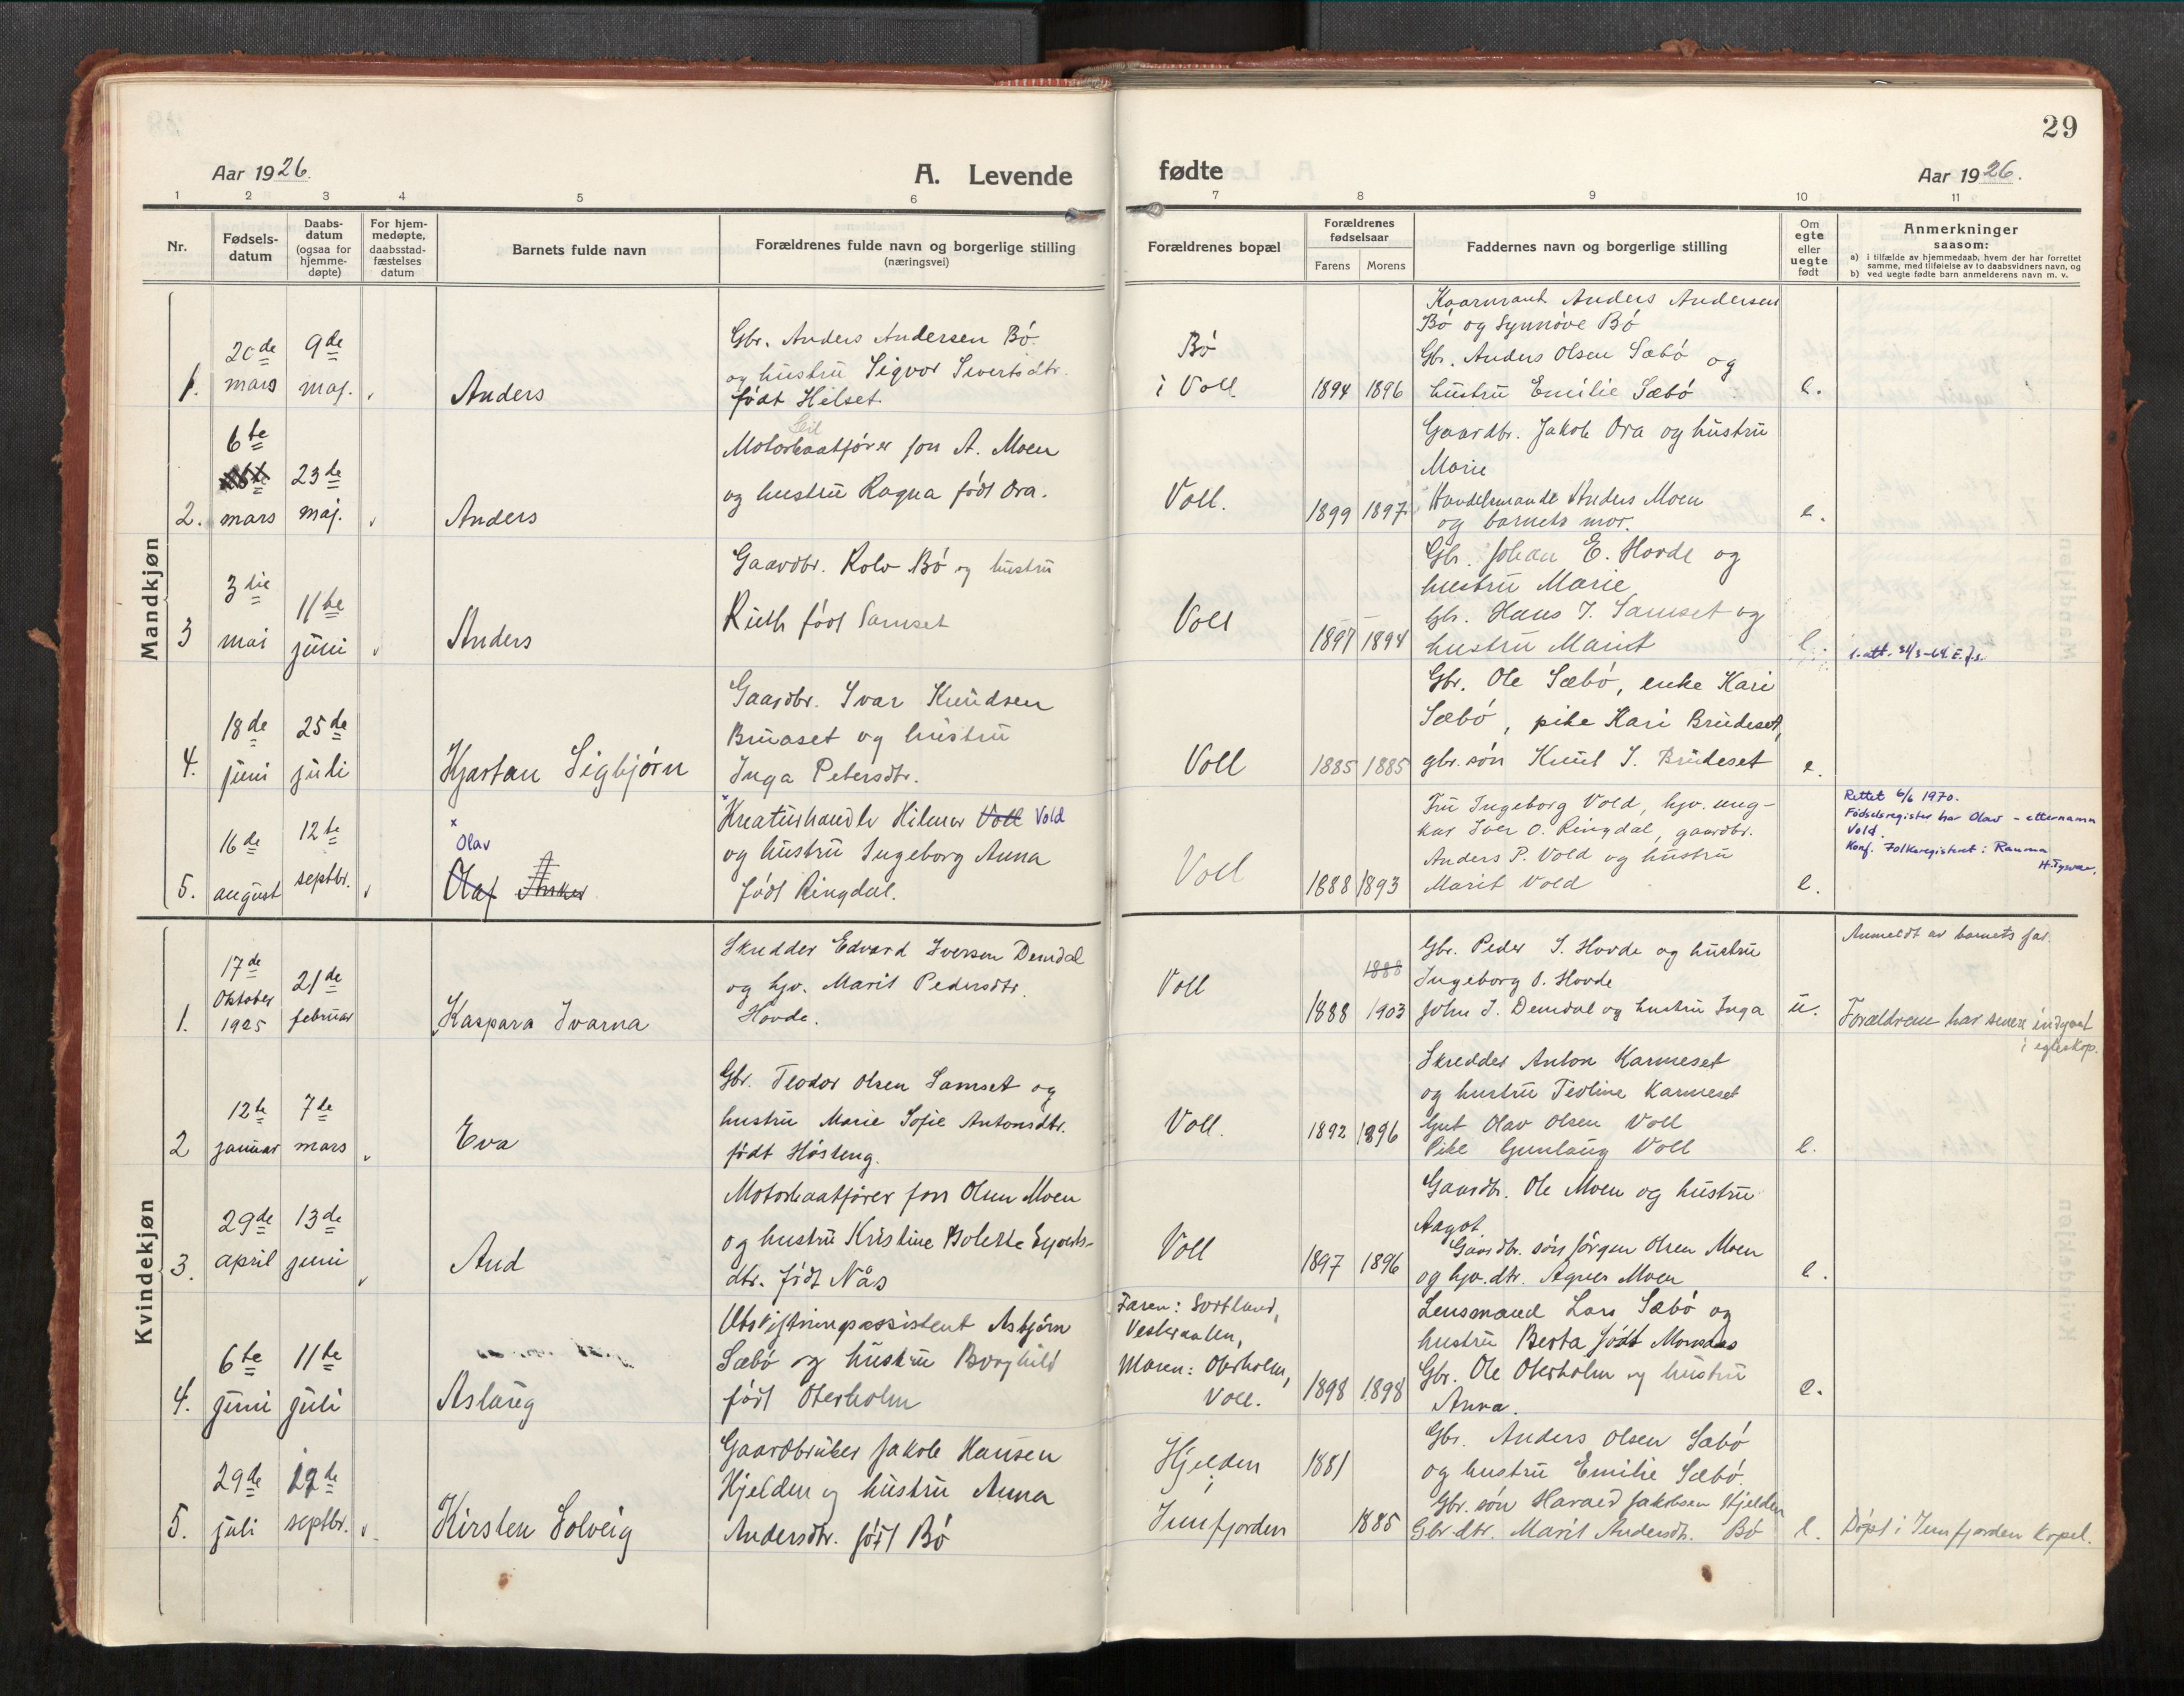 29
Aar 1926.
A. Levende
fødte
Aar 1926.
1 2 3 4 5 6 7 8 9 10 11
Nr.
Fødsels-
datum
Daabs-
datum
(ogsaa for
hjemme-
døpte)
For hjem-
medøpte,
daabsstad-
fæstelses
datum
Barnets fulde navn
Forældrenes fulde navn og borgerlige stilling
(næringsvei)
Forældrenes bopæl
Forældrenes
fødselsaar
Farens Morens
Faddernes navn og borgerlige stilling
Om
egte
eller
uegte
født
Anmerkninger
saasom:
a) i tilfælde av hjemmedaab, hvem der har forrettet
samme, med tilføielse av to daabsvidners navn, og
b) ved uegte fødte barn anmelderens navn m. v.
Mandkjøn
1.
20de
mars
9de
maj.
Anders
Gbr. Anders Andersen Bö
og hustru Sigvor Sivertsdtr.
födt Hilset
Bö
i Voll
1894 1896
Kaarmant Anders Andersen
Bö og Synnöve Bö
Gbr. Anders Olsen Sæbö og
hustru Emilie Sæbö
e.
2.
6te
mars
23de
maj.
Anders
Motorbaatförer Jon A. Moen
og hustru Ragna födt Ora.
Voll.
1899 1897
Gaardbr. Jakob Ora og hustru
Marie
Handelsmand Anders Moen
og barnets mor.
e.
3
3die
mai
11te
juni
Anders
Gaardbr. Rolv Bö og hustru
Ruth födt Samset
Voll
1897 1894
Gbr. Johan E. Hovde og
hustru Marie
Gbr. Hans J. Samset og
hustru Marit
e.
4.
18de
juni
25de
juli
Kjartan Sigbjörn
Gaardbr. Ivar Knudsen
Bruaset og hustru
Inga Petersdtr.
Voll
1885 1885
Gbr. Ole Sæbö, enke Kari
Sæbö, pike Kari Brudeset,
gbr. sön Knut I. Brudeset
e.
5.
16de
august
12te
septbr.
x
Olav
Olaf Anker
x Kreaturhandler Hilmar Voll Vold
og hustru Ingeborg Anna
födt Ringdal.
Voll
1888 1893
Fru Ingeborg Vold, hjv. ung-
kar Iver O. Ringdal, gaardbr.
Anders P. Vold og hustru
Marit Vold
e.
Rettet 6/6 1970.
Födselsregister har Olav - etternamn
Vold.
Konf. Folkeregisteret i Rauma
Kvindekjøn
1.
17de
Oktober
1925
21de
februar
Kaspara Ivarna
Skredder Edvard Iversen Demdal
og hjv. Marit Pedersdtr.
Hovde.
Voll
1888
1888 1903
Gbr. Peder I. Hovde og hustru
Ingeborg O. Hovde
John I. Demdal og hustru Inga
u.
Anmeldt av barnets far.
Forældrene har senere indgaat
i egteskap.
2
12te
januar
7de
mars
Eva
Gbr. Teodor Olsen Samset og
hustru Marie Sofie Antonsdtr.
födt Hösteng.
Voll.
1892 1896
Skredder Anton Karmeset
og hustru Teoline Karmeset
Gut Olav Olsen Voll
Pike Gunlaug Voll
e.
3.
29de
april
13de
juni
Aud
Motorbaatförer Jon Olsen Moen
og hustru Kristine Bolette Sjurds-
dtr. födt Nås
Voll
1897 1896
Gaardbr. Ole Moen og hustru
Aagot.
Gaardbr. sön Jörgen Olsen Moen
og hjv. dtr. Agnes Moen
e.
4.
6te
juni
11te
juli
Aslaug
Utskiftningsassistent Asbjörn
Sæbö og hustru Borghild
födt Oterholm
Faren: Sortland,
Vesteraalen,
Moren: Oterholm,
Voll.
1898 1898
Lensmand Lars Sæbö og
hustru Berta födt Monsdas
Gbr. Ole Oterholm og hustru
Anna.
e.
5.
29de
juli
12te
septbr.
Kirsten Solveig
Gaardbruker Jakob Hansen
Hjelden og hustru Anna
Andersdtr. födt Bö
Hjelden
i
Innfjorden
1881
1885
Gbr. Anders Olsen Sæbö
og hustru Emilie Sæbö.
Gbr. sön Harald Jakobsen Hjelden
Gbr dtr. Marit Andersdtr. Bö
e.
Döpt i Innfjorden kapel.